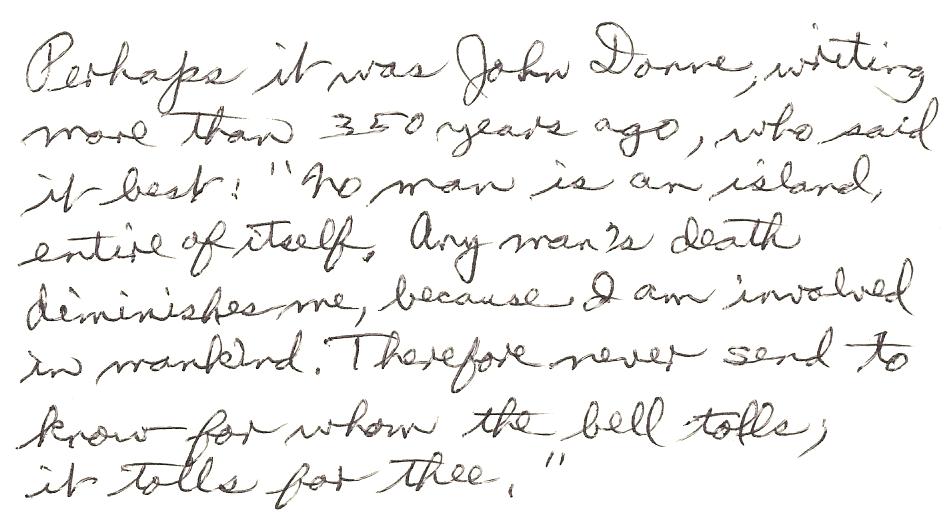 Perhaps it was John Donne, writing
more than 350 years ago, who said
it best: "No man is an island,
entire of itself. Any man's death
diminishes me, because I am involved
in mankind. Therefore never send to
know for whom the bell tolls;
it tolls for thee."